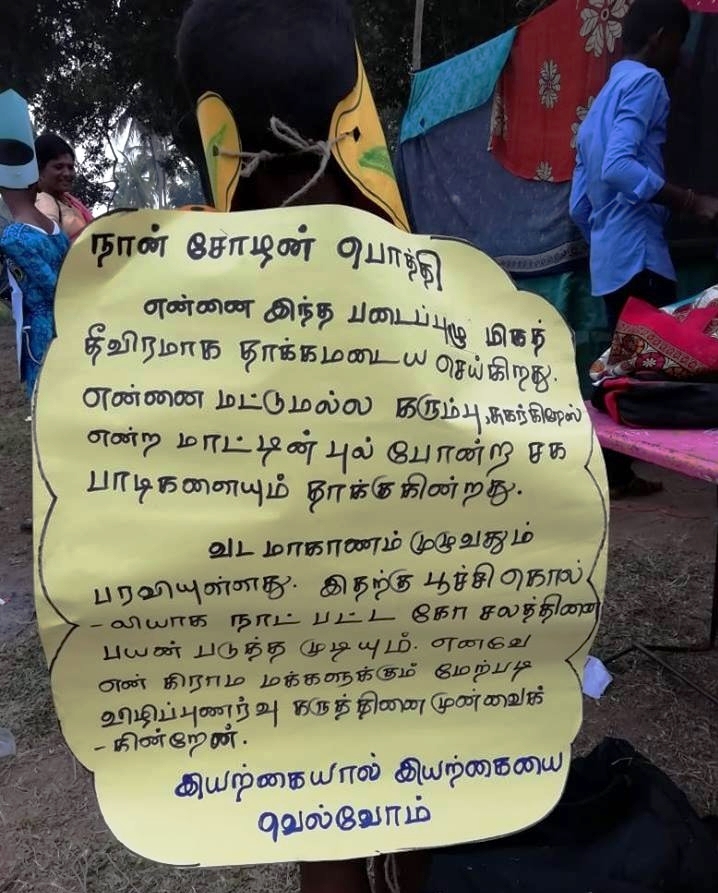 நான் சோடின் பொத்தி
என்னை இந்த படைப்புழு மிகத்
தீவிரமாக தாக்கமடைய செய்கிறது.
என்னை மட்டுமல்ல கரும்பு, சுகர்கிறேஸ்
என்ற மாட்டின் புல் போன்ற சக
பாடிகளையும் தாக்குகின்றது.
வட மாகாணம் முழுவதும்
பரவியுள்ளது. இதற்கு பூச்சி கொல்
- லியாக நாட் பட்ட கோ சலத்தினை
பயன் படுத்த முடியும். எனவே
என் கிராம மக்களுக்கும் மேற்படி
விழிப்புணர்வு கருத்தினை முன்வைக்
- கின்றேன்.
இயற்கையால் இயற்கையை
வெல்வோம்